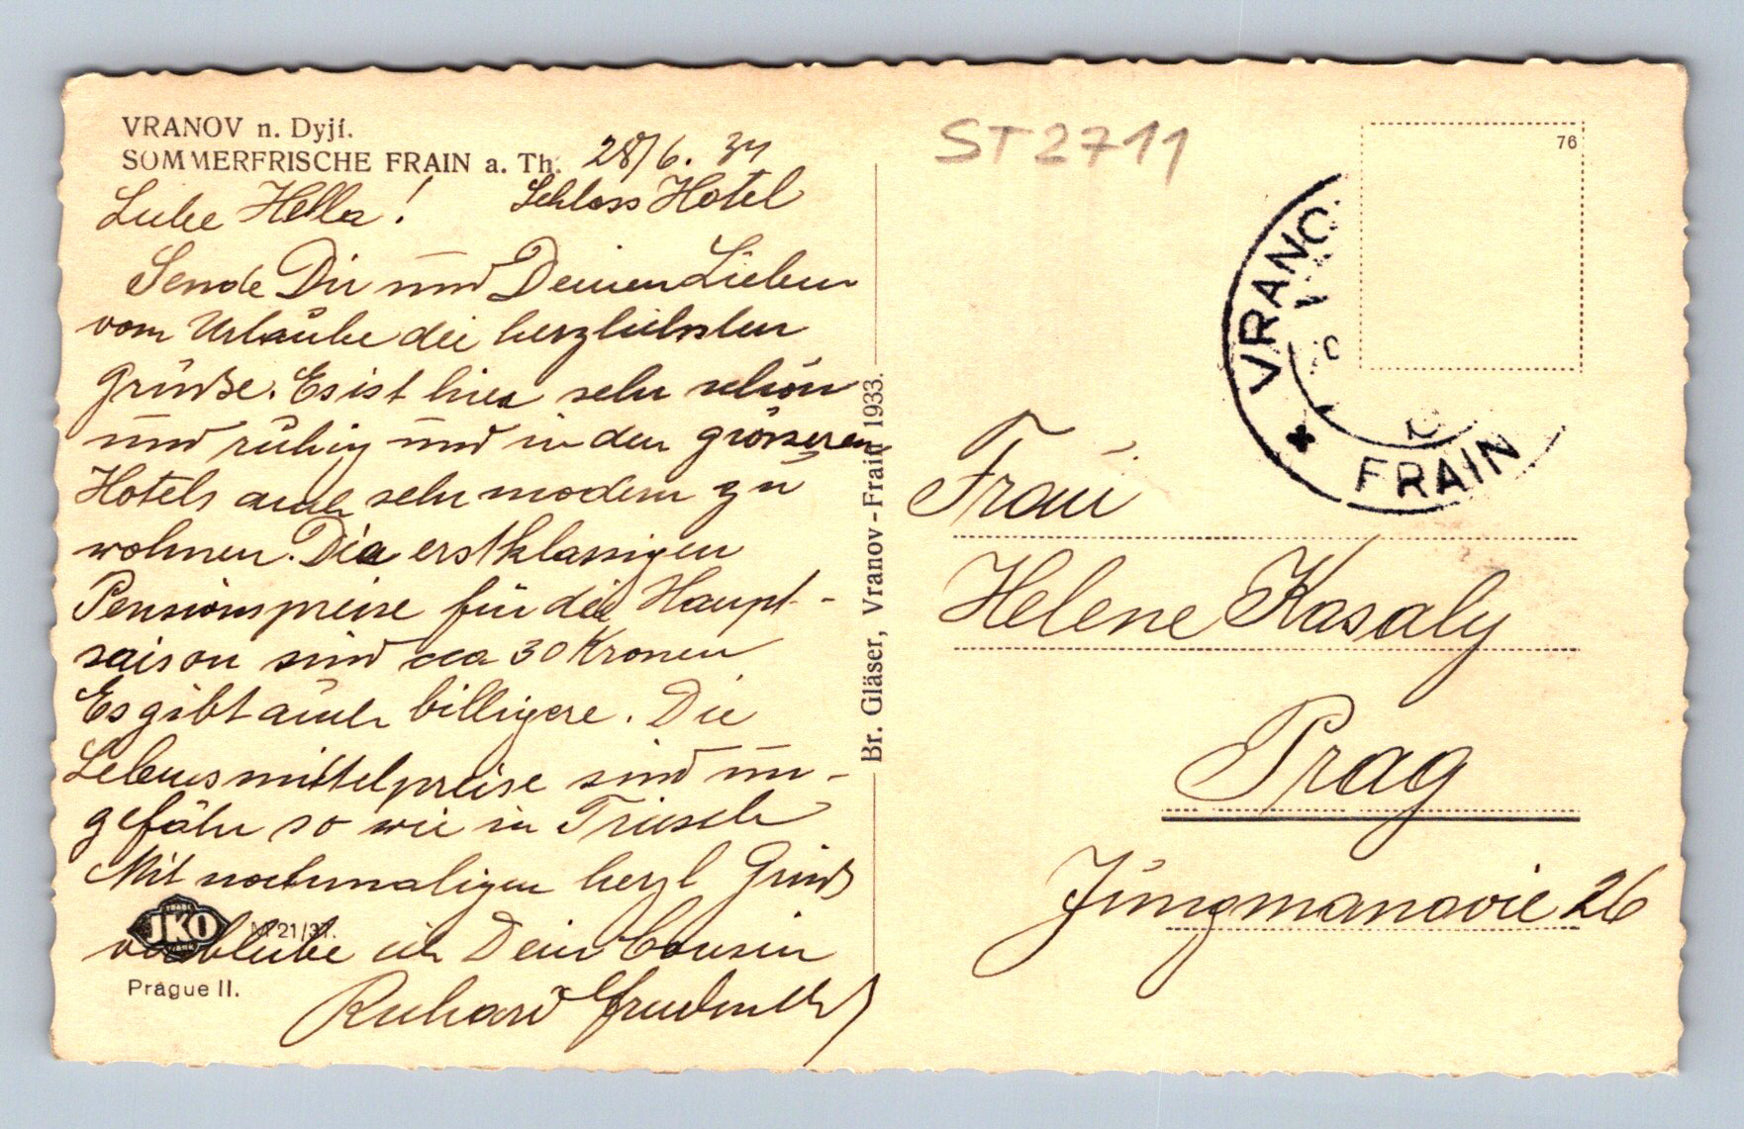 VRANOV n. Dyjí.
SOMMERFRISCHE FRAIN a. Th.
28/6. 34
Schloss Hotel
Liebe Hella!
Sende Dir und Deinen Lieben
vom Urlaube die herzlichsten
Grüsse. Es ist hier sehr schön
und ruhig und in den grösseren
Hotels auch sehr modern zu
wohnen. Die erstklassigen
Pensionspreise für die Haupt-
saison sind cca 30 Kronen
Es gibt auch billigere. Die
Lebensmittelpreise sind un-
gefähr so wie in Triesch
Mit nochmaligen herzl Gruß
verbleibe ich Dein Cousin
Richard
JKO
21/37.
Prague II.
Br. Gläser, Vranov-Frain 1933.
ST2711
76
VRANO
FRAIN
Frau
Helene Kasaly
Prag
Jungmanovie 26